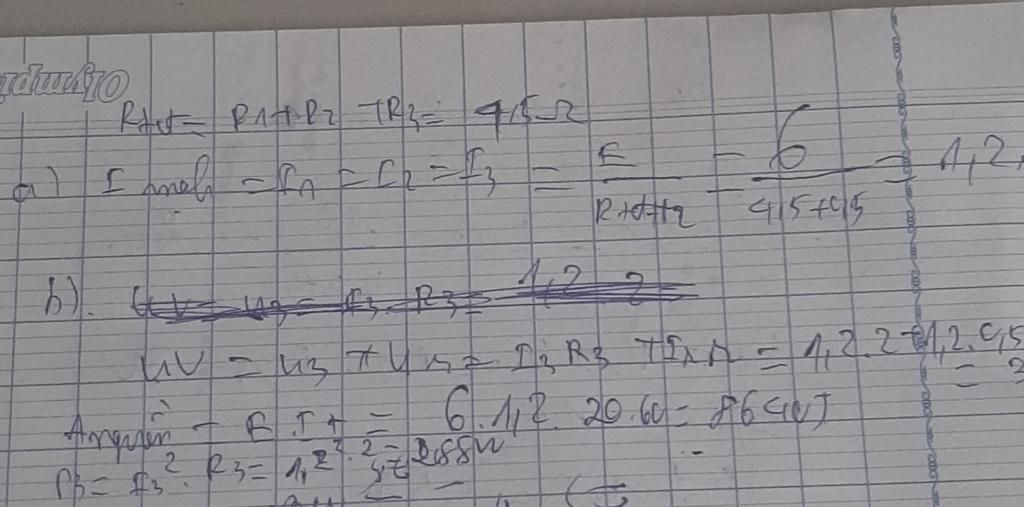 Rtđ = R1+R2+R3 = 4,5Ω
a) I mạch = I1 = I2 = I3 = E / Rtđ+r = 6 / 4,5+0,5 = 1,2
b). UV = U3 = I3 . R3 = 1,2 2
UV = U3 + U = I3 R3 + I = 1,2.2+1,2.0,5 =
A nguồn = E I t = 6.1,2.20.60 = 8640 J
P3 = I3² . R3 = 1,2² . 2 = 2,88W